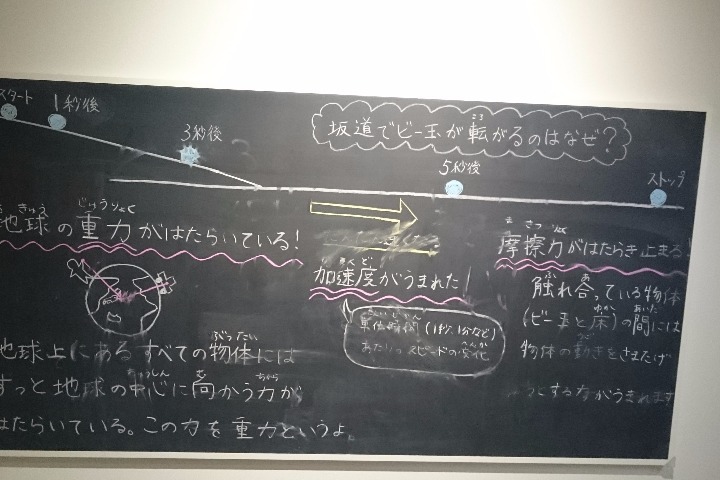 スタート
1秒後
3秒後
坂道でビー玉が転がるのはなぜ?
5秒後
ストップ
地球の重力がはたらいている!
加速度がうまれた!
摩擦力がはたらき止まる!
(1秒、1分など)
あたりのスピードの変化
触れ合っている物体
(ビー玉と床)の間には
物体の動きをさまたげ
うとする力がうまれます
地球上にあるすべての物体には
ずっと地球の中心に向かう力が
はたらいている。この力を重力というよ。